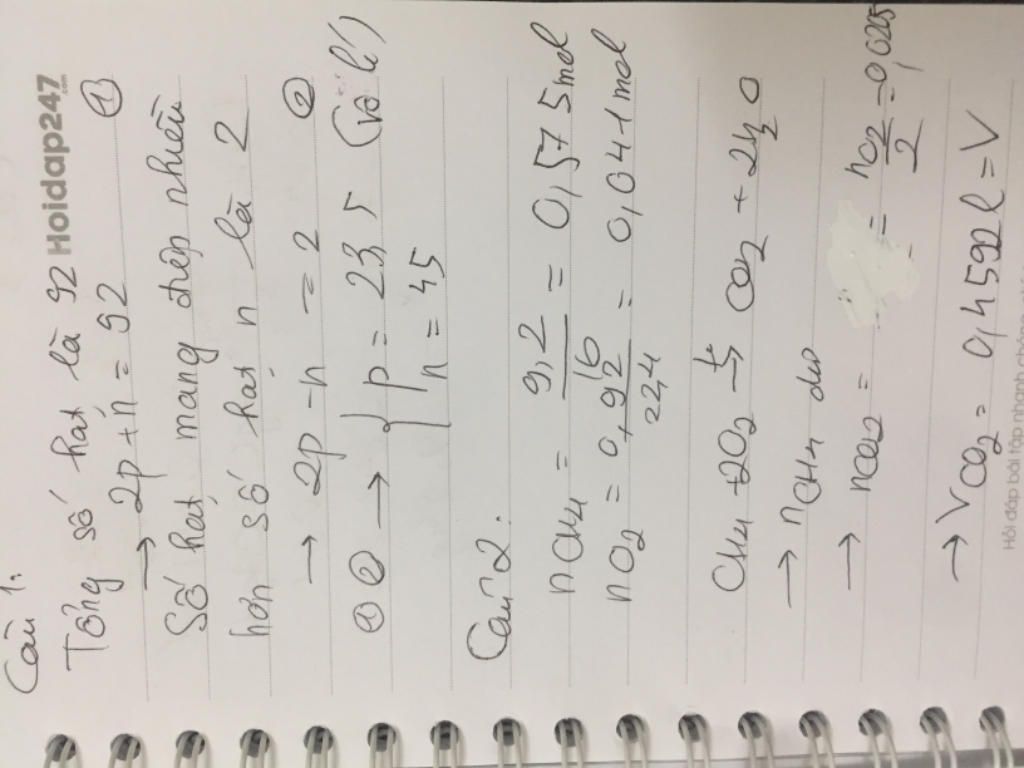 Câu 1.
Tổng số hạt là 92
Hoidap247.com
→ 2p + n = 92 ①
Số hạt mang điện nhiều
hơn số hạt n là 2
→ 2p - n = 2 ②
① ② → { p = 23,5 (vô lí)
n = 45
Câu 2.
nCH4 = 9,2/16 = 0,575 mol
nO2 = 0,92/22,4 = 0,041 mol
CH4 + 2O2 →t° CO2 + 2H2O
→ nCH4 dư
→ nCO2 = = nO2/2 = 0,0205
→ VCO2 = 0,4592 l = V
Hỏi đáp bài tập nhanh chóng,